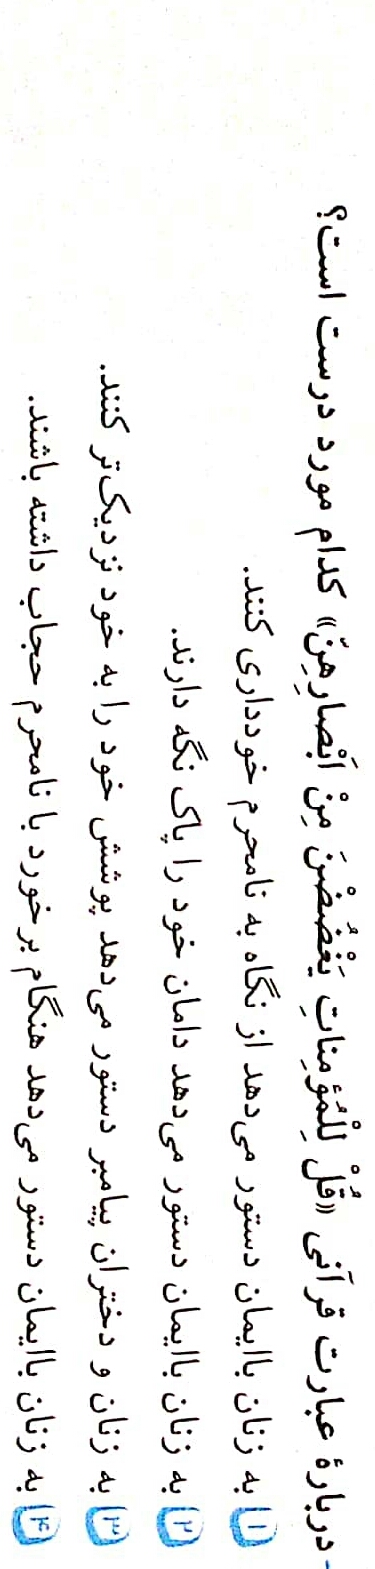 - دربارهٔ عبارت قرآنی «قُلْ لِلْمُؤمِناتِ یَغْضُضْنَ مِنْ اَبْصارِهِنّ» کدام مورد درست است؟
۱ به زنان باایمان دستور می‌دهد از نگاه به نامحرم خودداری کنند.
۲ به زنان باایمان دستور می‌دهد دامان خود را پاک نگه دارند.
۳ به زنان و دختران پیامبر دستور می‌دهد پوشش خود را به خود نزدیک‌تر کنند.
۴ به زنان باایمان دستور می‌دهد هنگام برخورد با نامحرم حجاب داشته باشند.